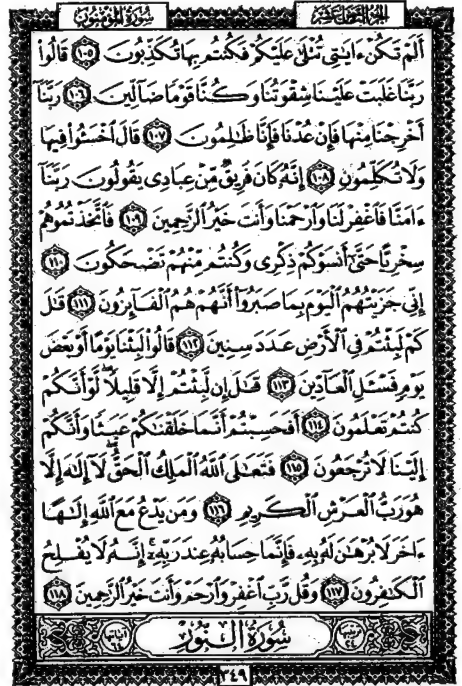 الجزء الثامن عشر سورة المؤمنون
أَلَمْ تَكُنْ ءَايَٰتِى تُتْلَىٰ عَلَيْكُمْ فَكُنتُم بِهَا تُكَذِّبُونَ ١٠٥ قَالُوا۟
رَبَّنَا غَلَبَتْ عَلَيْنَا شِقْوَتُنَا وَكُنَّا قَوْمًا ضَآلِّينَ ١٠٦ رَبَّنَآ
أَخْرِجْنَا مِنْهَا فَإِنْ عُدْنَا فَإِنَّا ظَٰلِمُونَ ١٠٧ قَالَ ٱخْسَـُٔوا۟ فِيهَا
وَلَا تُكَلِّمُونِ ١٠٨ إِنَّهُۥ كَانَ فَرِيقٌ مِّنْ عِبَادِى يَقُولُونَ رَبَّنَآ
ءَامَنَّا فَٱغْفِرْ لَنَا وَٱرْحَمْنَا وَأَنتَ خَيْرُ ٱلرَّٰحِمِينَ ١٠٩ فَٱتَّخَذْتُمُوهُمْ
سِخْرِيًّا حَتَّىٰٓ أَنسَوْكُمْ ذِكْرِى وَكُنتُم مِّنْهُمْ تَضْحَكُونَ ١١٠
إِنِّى جَزَيْتُهُمُ ٱلْيَوْمَ بِمَا صَبَرُوٓا۟ أَنَّهُمْ هُمُ ٱلْفَآئِزُونَ ١١١ قَٰلَ
كَمْ لَبِثْتُمْ فِى ٱلْأَرْضِ عَدَدَ سِنِينَ ١١٢ قَالُوا۟ لَبِثْنَا يَوْمًا أَوْ بَعْضَ
يَوْمٍ فَسْـَٔلِ ٱلْعَآدِّينَ ١١٣ قَٰلَ إِن لَّبِثْتُمْ إِلَّا قَلِيلًا لَّوْ أَنَّكُمْ
كُنتُمْ تَعْلَمُونَ ١١٤ أَفَحَسِبْتُمْ أَنَّمَا خَلَقْنَٰكُمْ عَبَثًا وَأَنَّكُمْ
إِلَيْنَا لَا تُرْجَعُونَ ١١٥ فَتَعَٰلَى ٱللَّهُ ٱلْمَلِكُ ٱلْحَقُّ لَآ إِلَٰهَ إِلَّا
هُوَ رَبُّ ٱلْعَرْشِ ٱلْكَرِيمِ ١١٦ وَمَن يَدْعُ مَعَ ٱللَّهِ إِلَٰهًا
ءَاخَرَ لَا بُرْهَٰنَ لَهُۥ بِهِۦ فَإِنَّمَا حِسَابُهُۥ عِندَ رَبِّهِۦٓ إِنَّهُۥ لَا يُفْلِحُ
ٱلْكَٰفِرُونَ ١١٧ وَقُل رَّبِّ ٱغْفِرْ وَٱرْحَمْ وَأَنتَ خَيْرُ ٱلرَّٰحِمِينَ ١١٨
سُورَةُ النُّورِ
٣٤٩